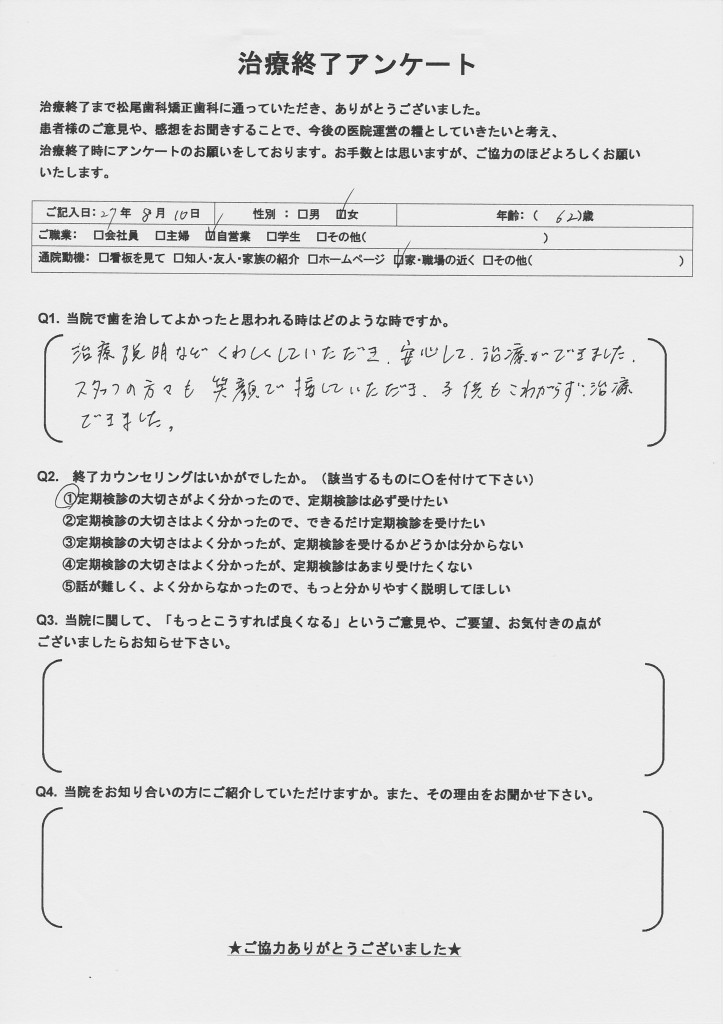 治療終了アンケート
治療終了まで松尾歯科矯正歯科に通っていただき、ありがとうございました。
患者様のご意見や、感想をお聞きすることで、今後の医院運営の糧としていきたいと考え、
治療終了時にアンケートのお願いをしております。お手数とは思いますが、ご協力のほどよろしくお願い
いたします。
ご記入日:27年 8月 10日 性別 : □男 ☑女 年齢:( 62)歳
ご職業: □会社員 □主婦 ☑自営業 □学生 □その他( )
通院動機: □看板を見て □知人・友人・家族の紹介 □ホームページ ☑家・職場の近く □その他( )
Q1. 当院で歯を治してよかったと思われる時はどのような時ですか。
治療説明などくわしくしていただき、安心して、治療ができました。
スタッフの方々も笑顔で接していただき、子供もこわがらず治療
できました。
Q2. 終了カウンセリングはいかがでしたか。(該当するものに○を付けて下さい)
①定期検診の大切さがよく分かったので、定期検診は必ず受けたい
②定期検診の大切さはよく分かったので、できるだけ定期検診を受けたい
③定期検診の大切さはよく分かったが、定期検診を受けるかどうかは分からない
④定期検診の大切さはよく分かったが、定期検診はあまり受けたくない
⑤話が難しく、よく分からなかったので、もっと分かりやすく説明してほしい
Q3. 当院に関して、「もっとこうすれば良くなる」というご意見や、ご要望、お気付きの点が
ございましたらお知らせ下さい。
Q4. 当院をお知り合いの方にご紹介していただけますか。また、その理由をお聞かせ下さい。
★ご協力ありがとうございました★